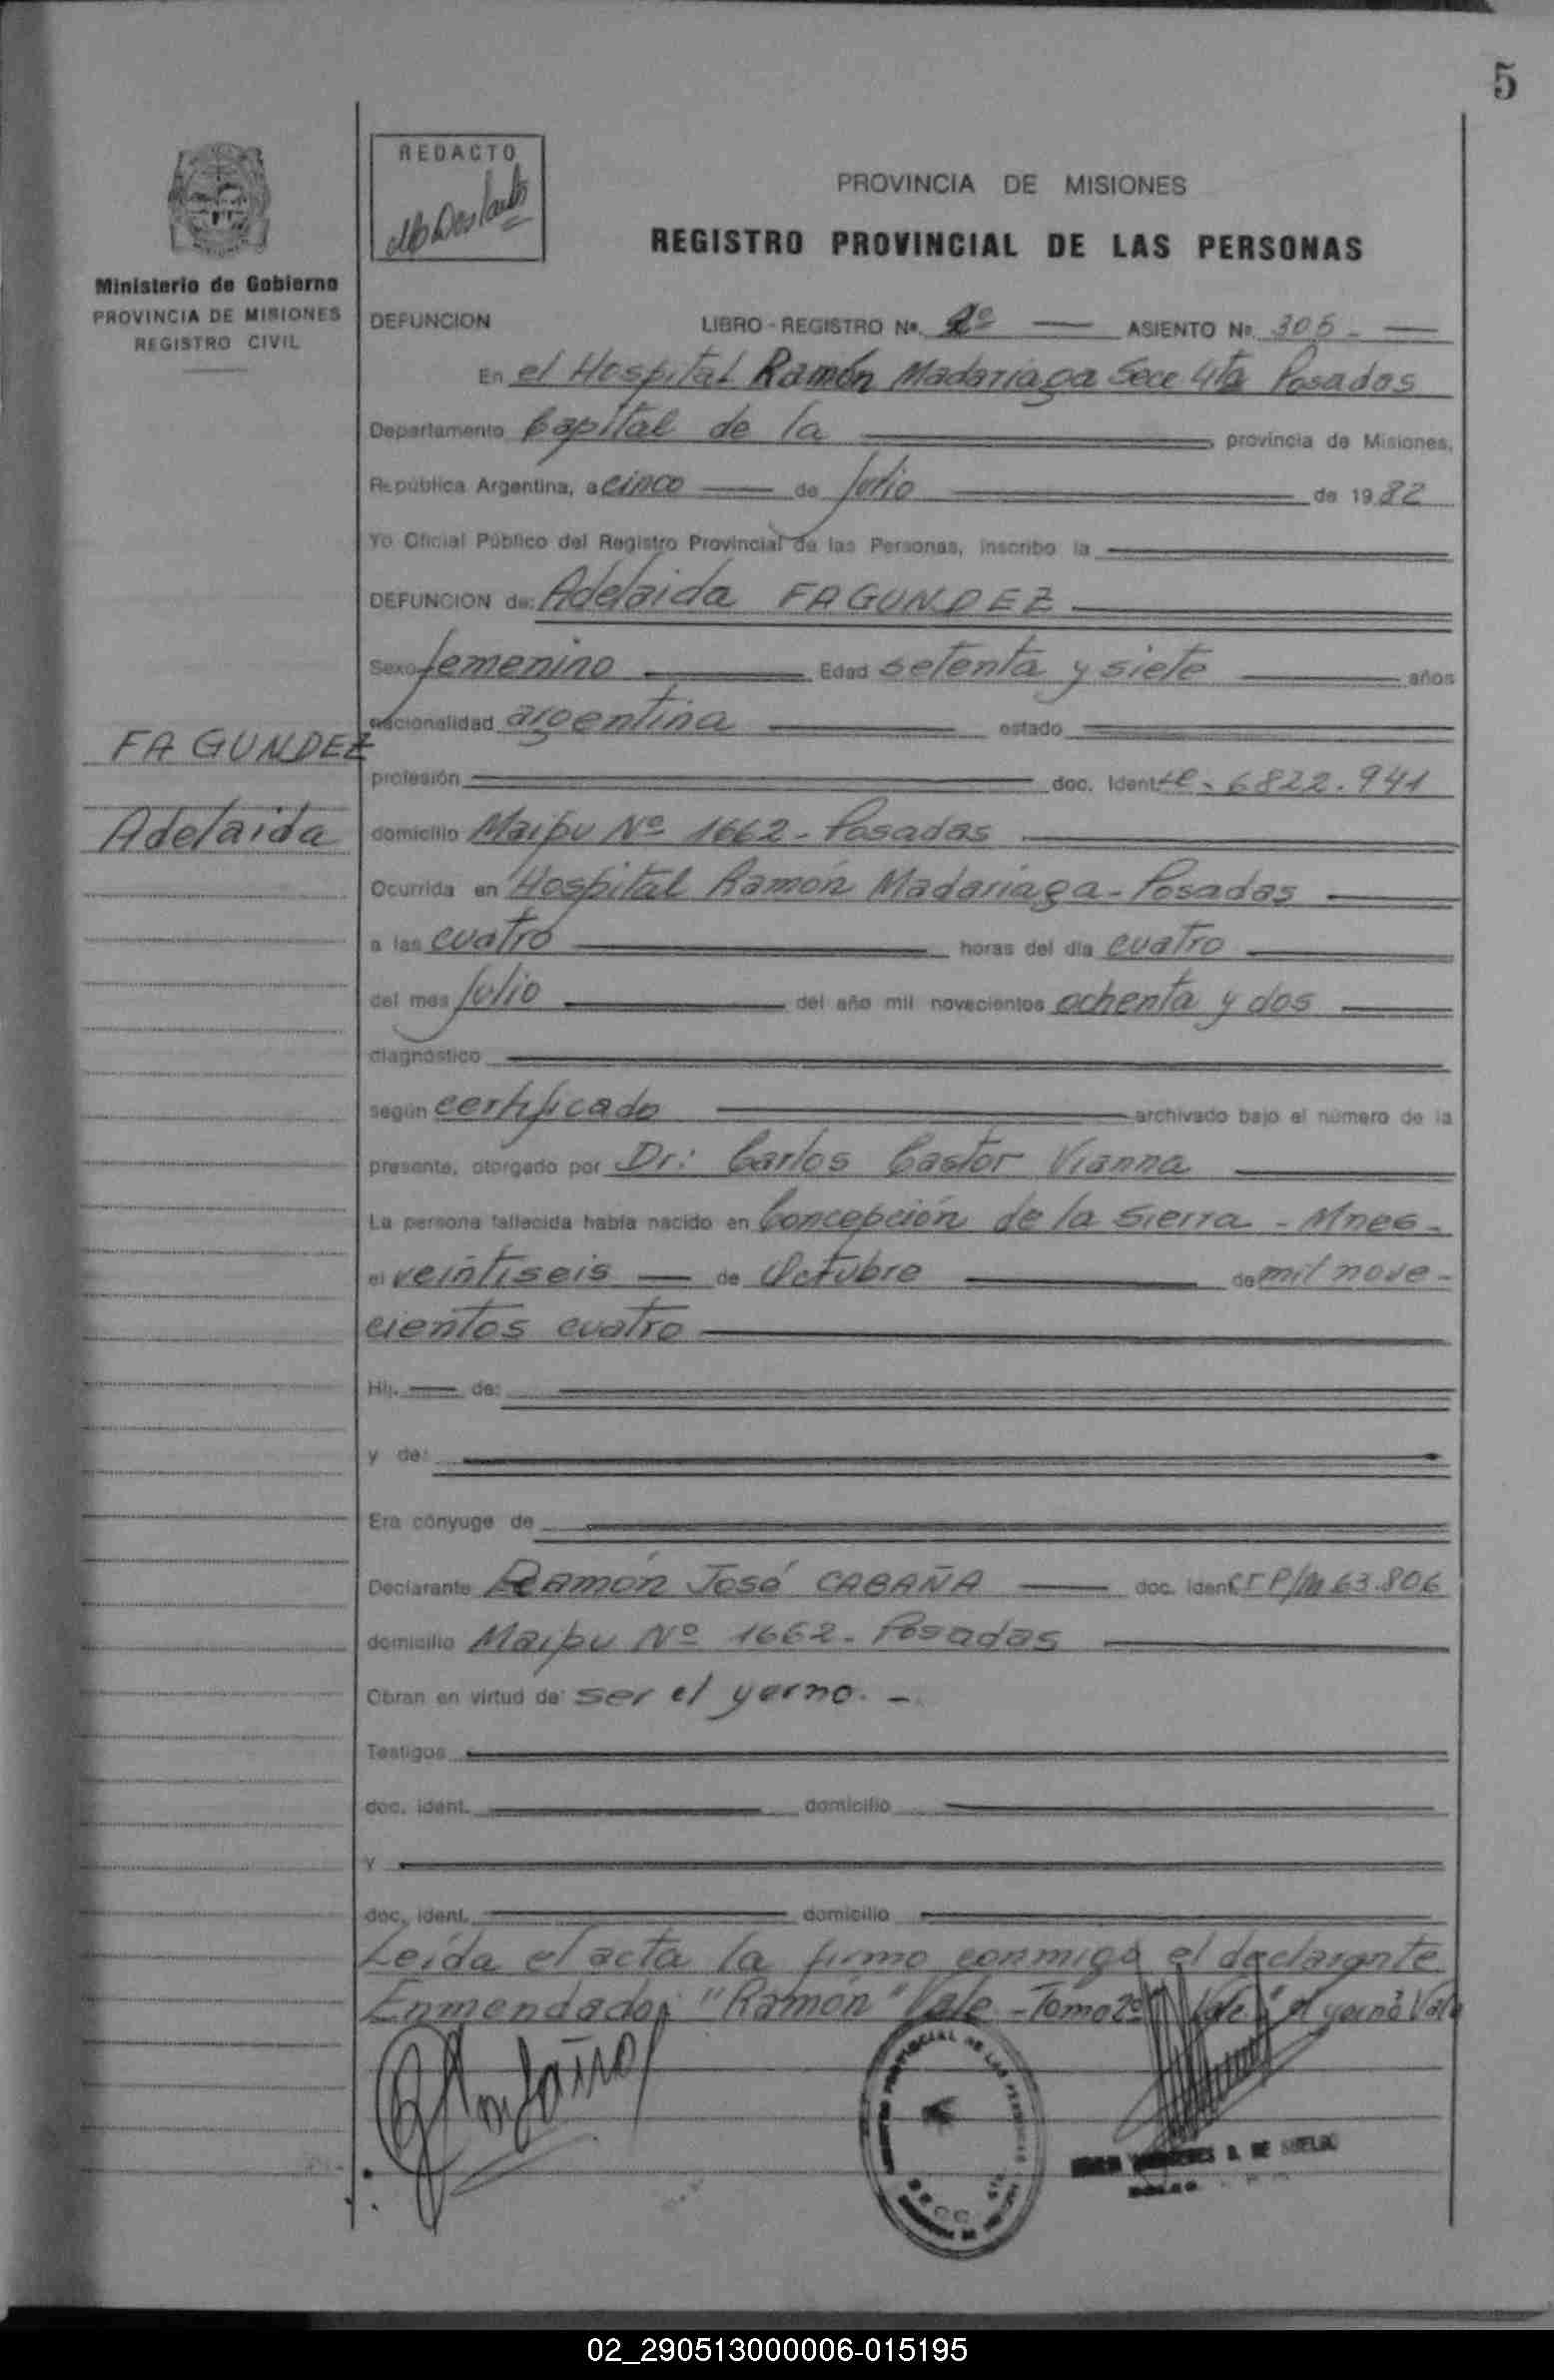 5
REDACTO
Ministerio de Gobierno
PROVINCIA DE MISIONES
REGISTRO CIVIL
PROVINCIA DE MISIONES
REGISTRO PROVINCIAL DE LAS PERSONAS
DEFUNCION LIBRO - REGISTRO Nº. 2º ASIENTO Nº 305
En el Hospital Ramón Madariaga Secc 4ta Posadas
Departamento Capital de la provincia de Misiones,
República Argentina, a cinco de Julio de 1982
Yo Oficial Público del Registro Provincial de las Personas, inscribo la
DEFUNCION de: Adelaida FAGUNDEZ
Sexo femenino Edad setenta y siete años
nacionalidad argentina estado
FAGUNDEZ
profesión doc. Ident. LC. 6822.941
Adelaida
domicilio Maipu Nº 1662 - Posadas
Ocurrida en Hospital Ramón Madariaga - Posadas
a las cuatro horas del día cuatro
del mes Julio del año mil novecientos ochenta y dos
diagnóstico
según certificado archivado bajo el número de la
presente, otorgado por Dr: Carlos Castor Vianna
La persona fallecida había nacido en Concepción de la Sierra - Mnes -
el veintiseis de Octubre de mil nove-
cientos cuatro
Hij. de:
y de:
Era cónyuge de
Declarante Ramón José CABAÑA doc. Ident. CI P/M 63.806
domicilio Maipu Nº 1662 - Posadas
Obran en virtud de ser el yerno. -
Testigos
doc. ident. domicilio
Y
doc. ident. domicilio
Leída el acta la firmo conmigo el declarante
Enmendado: "Ramón" Vale - Tomo 2º Vale. "el yerno" Vale
02_290513000006-015195